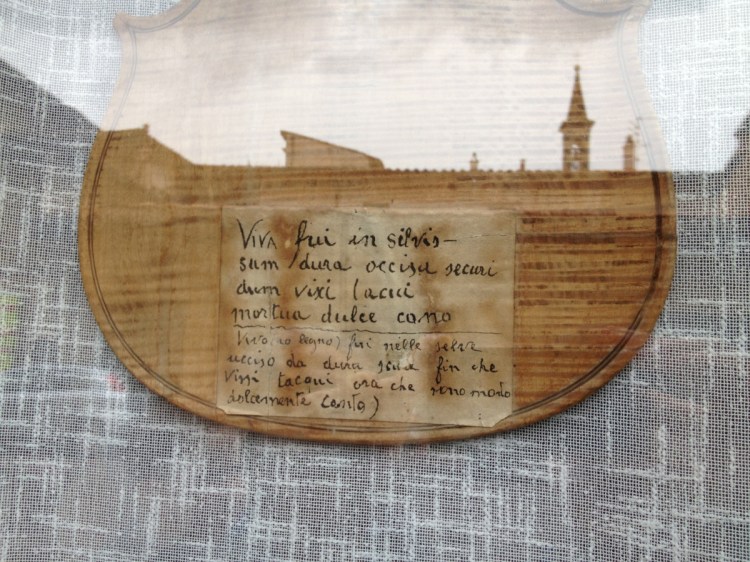 Viva fui in silvis –
sum dura occisa securi
dum vixi tacui
mortua dulce cano
Vivo, (io legno) fui nelle selve
ucciso da dura scure fin che
vissi tacqui ora che sono morto
dolcemente canto)